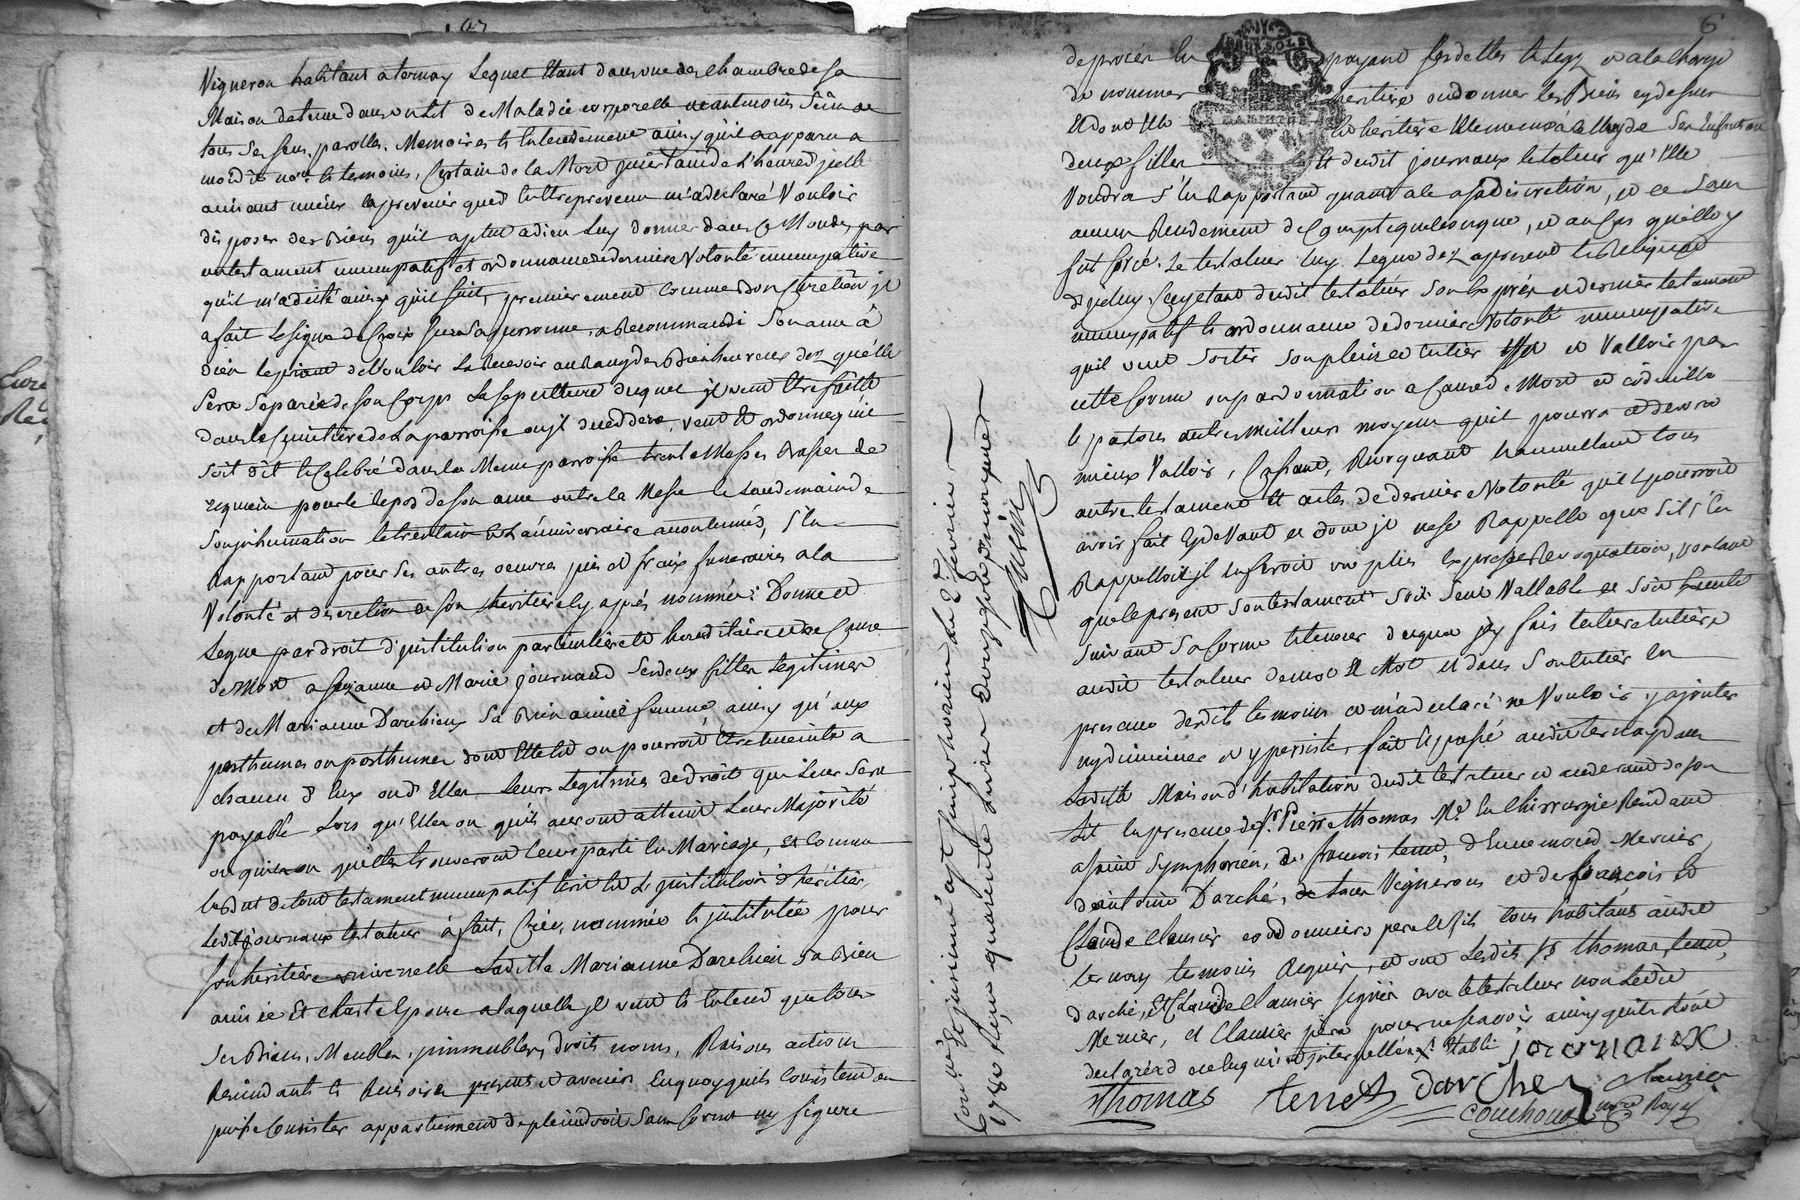 Vigneron habitant a ternay Lequel Etant dans une des chambre de sa
Maison detenu dans un lit de Maladie corporelle neantmoins Sain de
tous Ses sens, parolle, Memoire et Entendement ainsy qu'il a apparu a
moidit no.re et temoins, Certain de la Mort jncertain de L'heure d'jcelle
aimant mieux la prevenir que d'En Etre prevenu m'a declaré Vouloir
disposer des Biens qu'il a plut a dieu Luy donner dans ce Monde, par
un testament nuncupatif et ordonnance de derniere Volonté nuncupative
qu'il m'a dicté ainsy qu'il suit, premierement comme Bon Chretien jl
a fait Le signe de la Croix sur sa personne, a Recommandé Son ame à
Dieu le priant de Vouloir La Recevoir au Rang des Bienheureux dez qu'elle
Sera Separée de son Corps La Sepulture duquel jl veut Etre faitte
dans le Cimitiere de La parroisse ou jl deceddera, veut Et ordonne qu'il
Soit dit et Celebré dans la Meme parroisse trente Messes Basses de
requiem pour le Repos de son ame outre la Messe le Landemain de
Son jnhumation le trentain et L'anniversaire accoutumés, S'En
Rapportant pour Ses autres oeuvres pies et fraix funeraires a la
Volonté et discretion de son heritiere cy après nommée: Donne et
Legue par droit d'jnstitution particuliere et hereditaire et de Cause
de Mort a Suzanne et Marie Journaud Ses deux filles Legitimes
et de Marianne Darchieux Sa Bien aimée femme ainsy qu'aux
posthumes ou posthumes dont Elle Est ou pourroit Etre Enceinte a
chacun d'Eux ou d'Elles Leurs Legitimes de droit qui Leur Sera
payable Lors qu'Elles ou qu'ils auront atteint Leur Majorité
ou qu'ils ou qu'elles trouveront Leur parti En Mariage, Et Comme
le But de tout testament nuncupatif Ecrit Est L'jnstitution d'héritier
Ledit Journaux testateur à fait, Créé, nommée et jnstituée pour
Son heritiere universelle Laditte Marianne Darchieu Sa Bien
aimée Et chaste Epouse a laquelle jl veut et Entend que tous
Ses Biens, Meubles, jmmeubles, droits noms, Raisons actions
Rescindants et Rescisoires presents et avenir En quoy qu'ils Consistent ou
puisse Consister appartiennent de plein droit Sans forme ny figure
6
de procés En payant Ses dettes et Legs et a la charge
de nommer heritier ou donner les Biens cy dessus
Et dont Elle Est heritiere Elle meme à Celluy de Ses Enfants ou
deux filles Et dudit journaux testateur qu'Elle
Voudra S'En Rapportant quant a ce a Sa discretion, et ce Sans
aucun Rendement de Compte quelconque, et au cas qu'elle y
fut forcé Le testateur Luy Legue dez a present Le Reliquat
d'jceluy Ceçy Etant dudit testateur Son Exprés et dernier testament
nuncupatif et ordonnance de derniere Volonté nuncupative
qu'il veut Sortir Son plein et Entier Effet et Valloir par
cette forme ou par donnation a Cause de Mort et codicille
et par tous autres Meilleurs moyens qu'il pourra et devra
mieux Valloir, Cassant, Revoquant et annullant tous
autres testament Et actes de derniere Volonté qu'il pourroit
avoir fait Cy devant et dont jl ne se Rappelle que S'il S'En
Rappelloit jl En feroit une plus Expresse Revoquation, voulant
que le present Son testament Soit Seul Vallable et Soit Executé
Suivant Sa forme et teneur duquel j'ay fais lecture Entiere
audit testateur de mot Et Mot Et dans Son Entier En
presence desdits temoins et m'a declaré ne Vouloir y ajouter
ny diminuer et y persiste, fait Et passé audit ternay dans
Laditte Maison d'habitation dudit testateur et au devant de son
Lit En presence de S.r Pierre Thomas M.e En Chirrurgie Residant
a Saint Symphorien, de francois tenet, d'Ennemond Mernier,
d'antoine Darché, de tous Vignerons et de françois et
Claude Clausier cordonniers pere et fils tous habitans audit
ternay temoins Requis, et ont Lesdits S.r thomas, tenet,
d'arché, Et Claude Clausier Signés avec le testateur non Ledit
Mernier, et Clausier pere pour ne sçavoir ainsy qu'ils L'ont
declarés de ce Enquis et jnterpellés
journaux
Thomas tenet darche Clausier
Couchoud no.re Royal
Controllé et jnsinué a st simphorien
1780 Reçu quarante